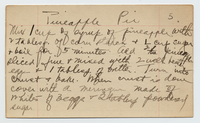 Pineapple Pie 5.
Mix 1 cup of syrup of pineapple with
2 tablesp of corn starch & 1 cup sugar
& boil for 5 minutes add the pineapple
sliced fine & mixed with 2 well beaten
eggs 1 tablesp of butter. Turn into
crust & bake. When crust is done
cover with a meringue made of
whites of 2 eggs & 2 tablesp powdered
sugar